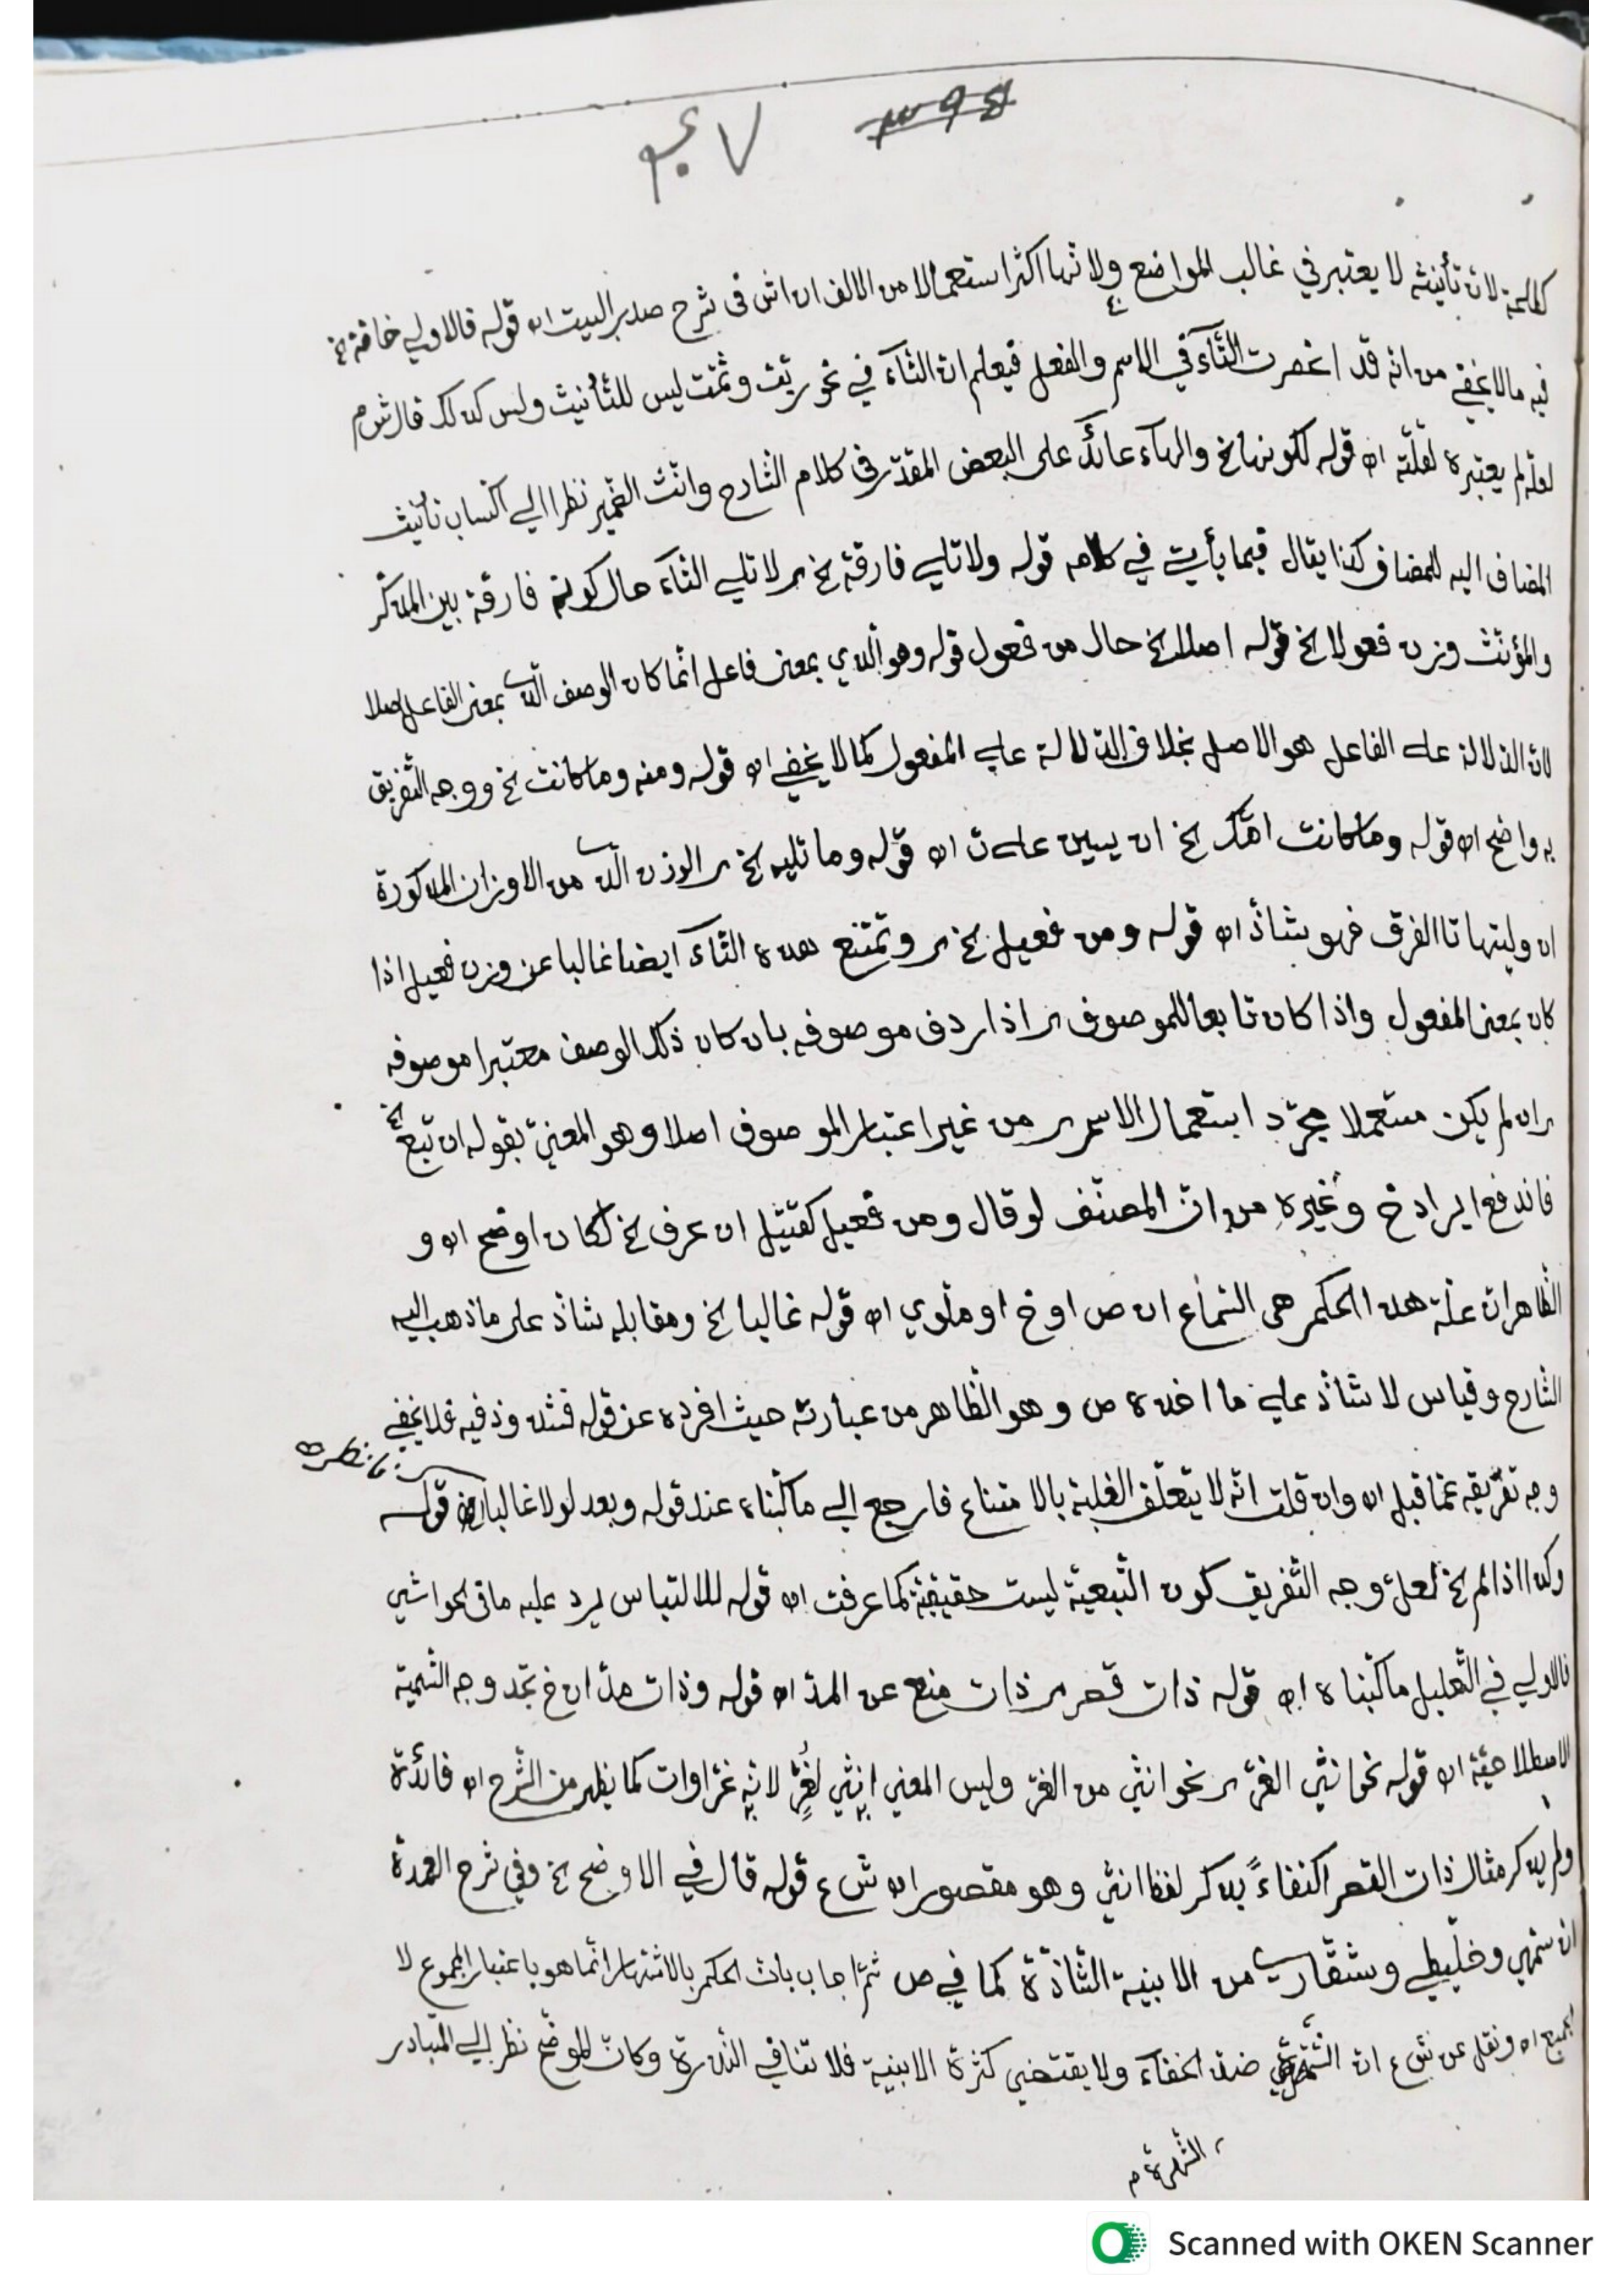 كالعدم لان تأنيثه لا يعتبر في غالب المواضع ولانها اكثر استعمالا من الالف اه اش في شرح صدر البيت اه قوله فالاولي خاصة الخ
فيه ما لا يخفي من انه قد انحصرت التآء في الاسم والفعل فيعلم ان التآء في نحو ربت وثمت ليس للتأنيث وليس كذلك قال ش م
لعله لم يعتبره لقلته اه قوله لكونها الخ والهآء عائد على البعض المقدر في كلام الشارح وانث الضمير نظرا الي اكتساب تأنيث
المضاف اليه للمضاف كذا يقال فيما يأتي في كلامه قوله ولا تلي فارقة الخ لا تلي التآء حال كونه فارقة بين المذكر
والمؤنث وزن فعولا الخ قوله اصلا الخ حال من فعول قوله وهو الذي بمعني فاعل انما كان الوصف الذي بمعني الفاعل اصلا
لان الدلالة على الفاعل هو الاصل بخلاف الدلالة علي المفعول كما لا يخفي اه قوله ومنه وما كانت الخ ووجه التفريق
به واضح اه قوله وما كانت امتك الخ ان يبين اه قوله وما تليه الخ الوزن الذي من الاوزان المذكورة
ان وليتها تا الفرق فهو شاذ اه قوله ومن فعيل الخ وتمتنع هذه التآء ايضا غالبا عن وزن فعيل اذا
كان بمعني المفعول واذا كان تابعا للموصوف اذا ردف موصوفه بان كان ذلك الوصف معتبرا موصوفه
ان لم يكن مستعملا مجرد استعمال الاسم من غير اعتبار الموصوف اصلا وهو المعني بقوله ان تبع الخ
فاندفع ايراد خ وغيره من ان المصنف لو قال ومن فعيل كقتيل ان عرف الخ لكان اوضح اه و
الظاهر ان علة هذا الحكم هي السماع اه ص او خ او ملوي اه قوله غالبا الخ ومقابله شاذ على ما ذهب اليه
الشارح وقياس لا شاذ علي ما اخذه ص وهو الظاهر من عبارته حيث افرده عن قوله فشذوذ فيه فلا يخفي
فانظره
وجه تفريقه عما قبل اه وان قلت انه لا يتعلق الغلبة بالامتناع فارجع الي ما كتبناه عند قوله وبعد لولا غالبا قوله
وكذا اذا لم الخ لعل وجه التفريق كون التبعية ليست حقيقية كما عرفت اه قوله للالتباس يرد عليه ما في الحواشي
فالاولي في التعليل ما كتبناه اه قوله ذات قصر ذات منع عن المد اه قوله وذات مد اه خ تجد وجه التسمية
الاصطلاحية اه قوله نحو انثي الغر نحو انثي من الغر وليس المعني انثي لغر لانه غراوات كما يظهر من الشرح اه فائدة
ولم يذكر مثال ذات القصر اكتفاءً بذكر لفظ انثي وهو مقصور اه ش ع قوله قال في الاوضح الخ وفي شرح العمدة
ان سمهي وخليطي وشقاري من الابنية الشاذة كما في ص ثم اجاب بان الحكم بالاشتهار انما هو باعتبار المجموع لا
الجميع اه ونقل عن ش ع ان الشهرة ضد الخفآء ولا يقتضي كثرة الابنية فلا تنافي الندرة وكان الموضح نظر الي المتبادر
الشهرة م
Scanned with OKEN Scanner